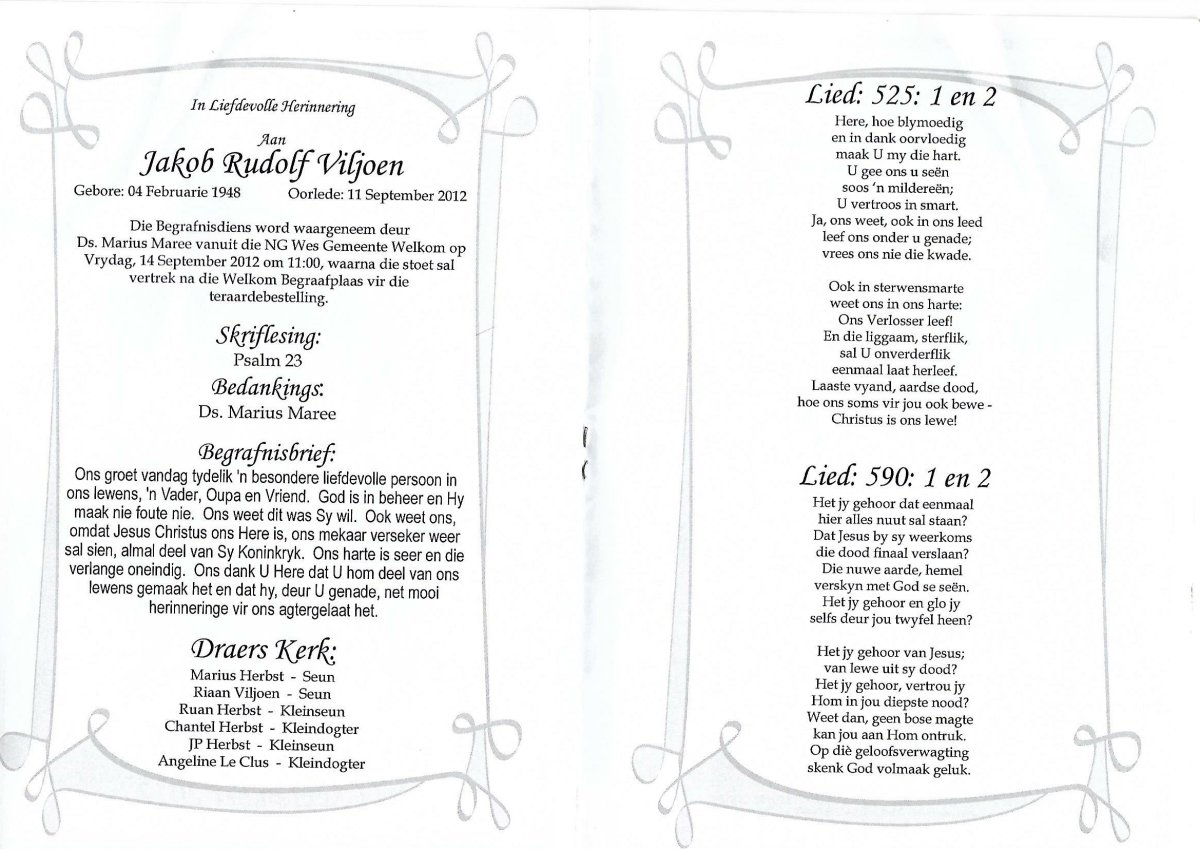 In Liefdevolle Herinnering
Aan
Jakob Rudolf Viljoen
Gebore: 04 Februarie 1948 Oorlede: 11 September 2012
Die Begrafnisdiens word waargeneem deur
Ds. Marius Maree vanuit die NG Wes Gemeente Welkom op
Vrydag, 14 September 2012 om 11:00, waarna die stoet sal
vertrek na die Welkom Begraafplaas vir die
teraardebestelling.
Skriflesing:
Psalm 23
Bedankings:
Ds. Marius Maree
Begrafnisbrief:
Ons groet vandag tydelik 'n besondere liefdevolle persoon in
ons lewens, 'n Vader, Oupa en Vriend. God is in beheer en Hy
maak nie foute nie. Ons weet dit was Sy wil. Ook weet ons,
omdat Jesus Christus ons Here is, ons mekaar verseker weer
sal sien, almal deel van Sy Koninkryk. Ons harte is seer en die
verlange oneindig. Ons dank U Here dat U hom deel van ons
lewens gemaak het en dat hy, deur U genade, net mooi
herinneringe vir ons agtergelaat het.
Draers Kerk:
Marius Herbst - Seun
Riaan Viljoen - Seun
Ruan Herbst - Kleinseun
Chantel Herbst - Kleindogter
JP Herbst - Kleinseun
Angeline Le Clus - Kleindogter
Lied: 525: 1 en 2
Here, hoe blymoedig
en in dank oorvloedig
maak U my die hart.
U gee ons u seën
soos 'n mildereën;
U vertroos in smart.
Ja, ons weet, ook in ons leed
leef ons onder u genade;
vrees ons nie die kwade.
Ook in sterwensmarte
weet ons in ons harte:
Ons Verlosser leef!
En die liggaam, sterflik,
sal U onverderflik
eenmaal laat herleef.
Laaste vyand, aardse dood,
hoe ons soms vir jou ook bewe -
Christus is ons lewe!
Lied: 590: 1 en 2
Het jy gehoor dat eenmaal
hier alles nuut sal staan?
Dat Jesus by sy weerkoms
die dood finaal verslaan?
Die nuwe aarde, hemel
verskyn met God se seën.
Het jy gehoor en glo jy
selfs deur jou twyfel heen?
Het jy gehoor van Jesus;
van lewe uit sy dood?
Het jy gehoor, vertrou jy
Hom in jou diepste nood?
Weet dan, geen bose magte
kan jou aan Hom ontruk.
Op diè geloofsverwagting
skenk God volmaak geluk.